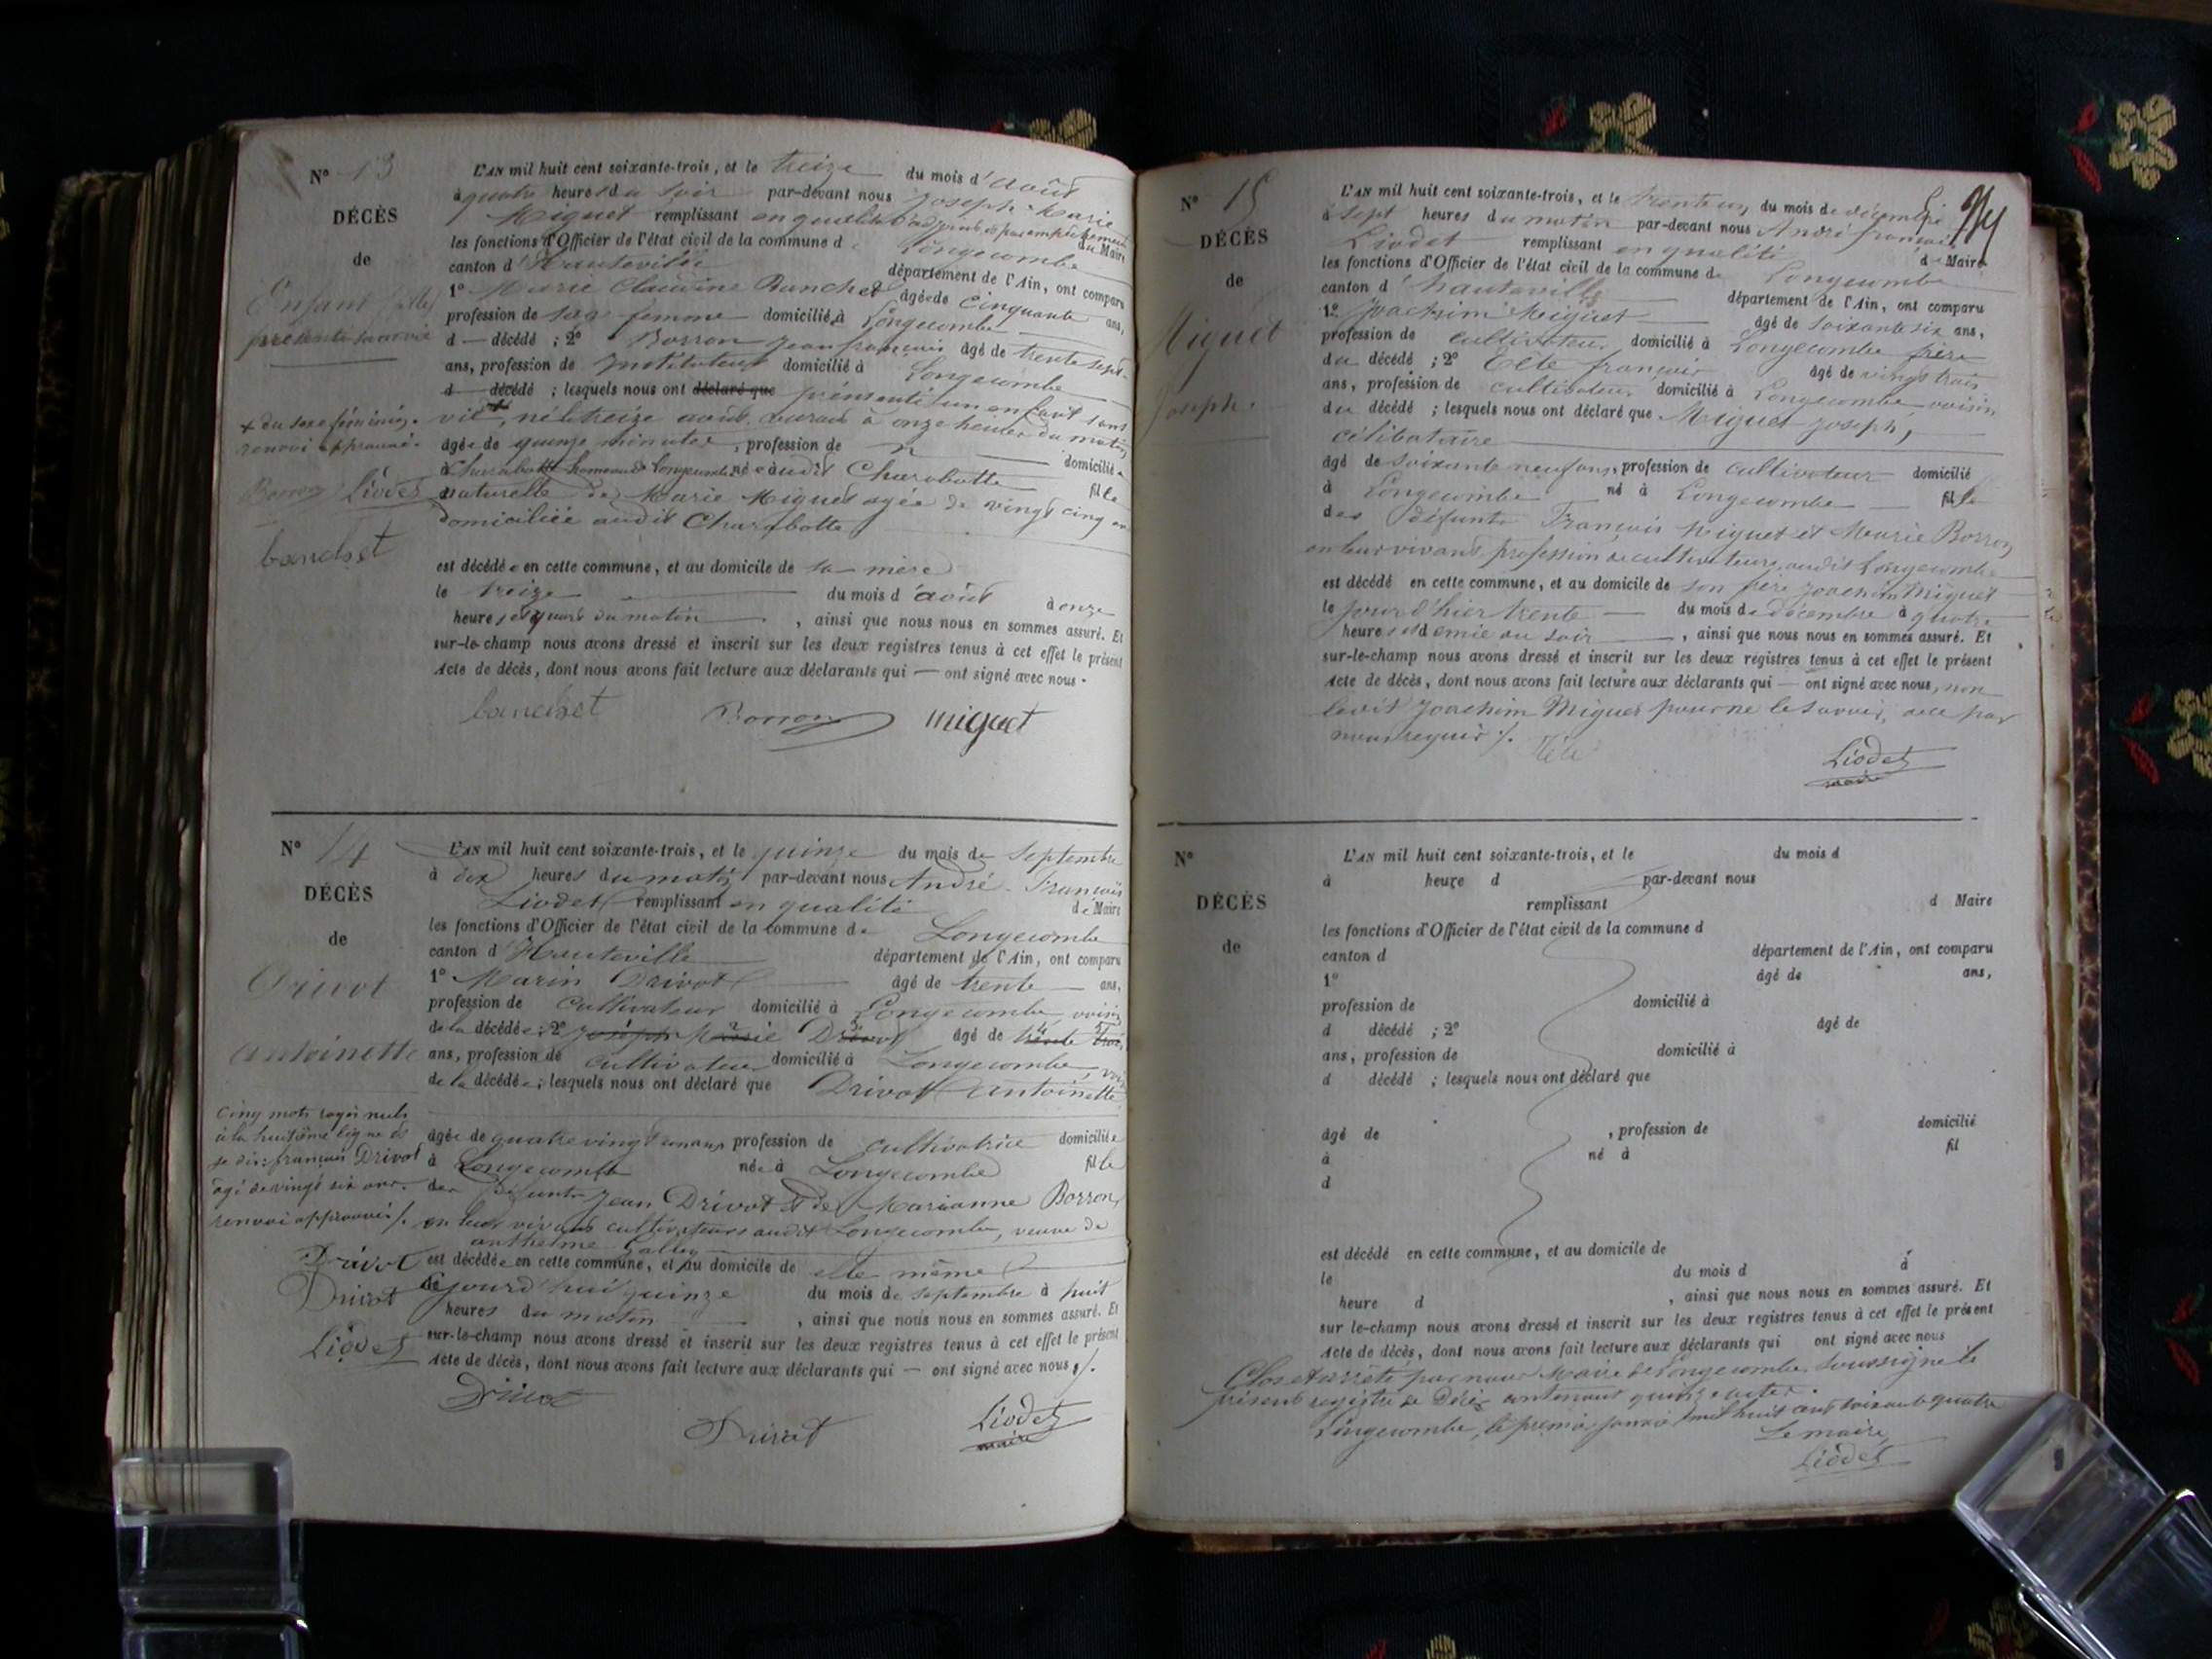 N° 13
DÉCÈS
de
Enfant
présenté sans vie
+ du sexe féminin.
renvoi approuvé.
Borron Liodet
banchet
L'AN mil huit cent soixante-trois, et le treize du mois d'août
à quatre heures du soir par-devant nous Joseph Marie
Miguet remplissant en qualité d'adjoint et par empêchement du Maire
les fonctions d'Officier de l'état civil de la commune de Longecombe
canton d'Hauteville département de l'Ain, ont comparu
1° Marie Claudine Banchet âgée de cinquante ans,
profession de sage femme domiciliée à Longecombe
d — décédé ; 2° Borron Jean françois âgé de trente sept
ans, profession de Instituteur domicilié à Longecombe
d décédé ; lesquels nous ont déclaré que présenté un enfant sans
vie+, né le treize août courant à onze heures du matin
âgée de quinze minutes, profession de domiciliée
à Charabotte hameau de Longecombe née audit Charabotte fille
naturelle de Marie Miguet agée de vingt cinq ans
domiciliée audit Charabotte
est décédée en cette commune, et au domicile de sa mère
le treize du mois d'août à onze
heures et quart du matin, ainsi que nous nous en sommes assuré. Et
sur-le-champ nous avons dressé et inscrit sur les deux registres tenus à cet effet le présent
Acte de décès, dont nous avons fait lecture aux déclarants qui — ont signé avec nous.
banchet Borron miguet
N° 14
DÉCÈS
de
Drivot
Antoinette
Cinq mots rayés nuls
à la huitième ligne et
se dire françois Drivot
âgé de vingt six ans.
renvoi approuvé /.
Drivot
Drivot
Liodet
L'AN mil huit cent soixante-trois, et le quinze du mois de Septembre
à dix heures du matin par-devant nous André François
Liodet remplissant en qualité de Maire
les fonctions d'Officier de l'état civil de la commune de Longecombe
canton d'Hauteville département de l'Ain, ont comparu
1° Marin Drivot âgé de trente ans,
profession de cultivateur domicilié à Longecombe, voisin
de la décédée ; 2° Joseph Marie Drivot âgé de trente trois
ans, profession de cultivateur domicilié à Longecombe, voisin
de la décédée ; lesquels nous ont déclaré que Drivot Antoinette
âgée de quatre vingt un ans, profession de cultivatrice domiciliée
à Longecombe née à Longecombe fille
des défunts Jean Drivot et de Marianne Borron,
en leur vivant cultivateurs audit Longecombe, veuve de
anthelme
est décédée en cette commune, et au domicile de elle même
le jourd'hui quinze du mois de septembre à huit
heures du matin, ainsi que nous nous en sommes assuré. Et
sur-le-champ nous avons dressé et inscrit sur les deux registres tenus à cet effet le présent
Acte de décès, dont nous avons fait lecture aux déclarants qui — ont signé avec nous /.
Drivot
Drivot
Liodet
maire
N° 15
DÉCÈS
de
Miguet
Joseph.
L'AN mil huit cent soixante-trois, et le trente un du mois de décembre
à sept heures du matin par-devant nous André françois
Liodet remplissant en qualité de Maire
les fonctions d'Officier de l'état civil de la commune de Longecombe
canton d'hauteville département de l'Ain, ont comparu
1° Joachim Miguet âgé de soixante six ans,
profession de cultivateur domicilié à Longecombe frère
du décédé ; 2° françois âgé de vingt trois
ans, profession de cultivateur domicilié à Longecombe, voisin
du décédé ; lesquels nous ont déclaré que Miguet Joseph,
célibataire
âgé de soixante neuf ans, profession de cultivateur domicilié
à Longecombe né à Longecombe fils
des défunts François Miguet et Marie Borron,
en leur vivant profession de cultivateurs audit Longecombe
est décédé en cette commune, et au domicile de son frère Joachim Miguet
le jour d'hier trente du mois de décembre à quatre
heures et demie du soir, ainsi que nous nous en sommes assuré. Et
sur-le-champ nous avons dressé et inscrit sur les deux registres tenus à cet effet le présent
Acte de décès, dont nous avons fait lecture aux déclarants qui — ont signé avec nous, non
ledit Joachim Miguet pour ne le savoir, de ce par
nous requis /.
Liodet
maire
N°
DÉCÈS
de
L'AN mil huit cent soixante-trois, et le du mois d
à heure d par-devant nous
remplissant d Maire
les fonctions d'Officier de l'état civil de la commune d
canton d département de l'Ain, ont comparu
1° âgé de ans,
profession de domicilié à
d décédé ; 2° âgé de
ans, profession de domicilié à
d décédé ; lesquels nous ont déclaré que
âgé de , profession de domicilié
à né à fil
d
est décédé en cette commune, et au domicile de
le du mois d à
heure d , ainsi que nous nous en sommes assuré. Et
sur le-champ nous avons dressé et inscrit sur les deux registres tenus à cet effet le présent
Acte de décès, dont nous avons fait lecture aux déclarants qui ont signé avec nous
Clos et arrêté par nous Maire de Longecombe, soussigné le
présent registre de Décès contenant quinze actes.
Longecombe, le premier janvier mil huit cent soixante quatre
Le maire,
Liodet